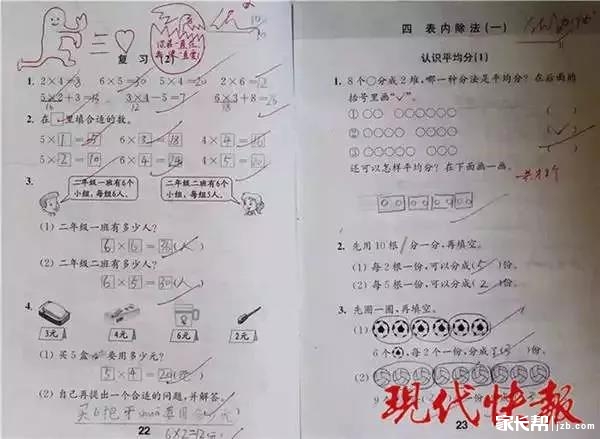 复 习 (2)
1. 2×4=8 6×5=30 5×4=20 2×6=12
5×2+3=13 3×4-5=7 6×3+8=26
2. 在□里填合适的数。
5×1=5 6×3=18 4×4=16
5×2=10 6×4=24 4×5=20
3.
二年级一班有6个小组,每组6人。
二年级二班有6个小组,每组5人。
(1) 二年级一班有多少人?
6×6=36(人)
(2) 二年级二班有多少人?
6×5=30(人)
4.
3元 4元 6元 2元
(1) 买5盒 要用多少元?
5×4=20(元)
(2) 自己再提出一个合适的问题,并解答。
6×2=12
22
四 表内除法(一)
认识平均分(1)
1. 8个○分成2堆,哪一种分法是平均分?在后面的
括号里画“✓”。
① ○○ ○○○○○○ ( )
② ○○○○ ○○○○ (✓)
③ ○○○ ○○○○○ ( )
还可以怎样平均分?在下面画一画。
2. 先用10根 分一分,再填空。
(1) 每2根一份,可以分成(5)份。
(2) 每5根一份,可以分成(2)份。
3. 先圈一圈,再填空。
(1)
6个 ,每2个一份,分成了(3)份。
(2)
9
23
现代快報
家长帮 jzb.com